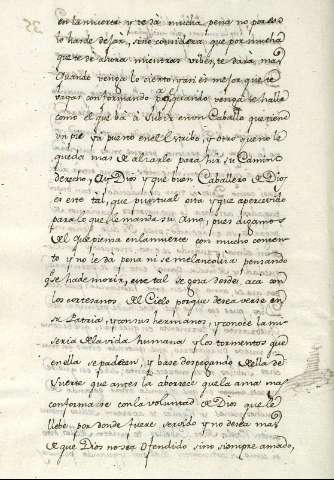 en la muerte y te dà mucha pena no por esso
lo has de dejàr, sino considera, que por mucha
que te dè ahora mientras vives, te darà mas
quando venga lo cierto, y asi es mejor, que te
vayas conformando p.a q.e quando venga te halle
como el que bà à subir en vn Caballo que tiene
vn pie yà puesto en el Estribo, y otro que no le
queda mas q.e alzarle para hir su Camino
derecho, Ay Dios y que buen Caballero de Dios
es este tàl, que puntual està y que apercevido
para lo que le manda su Amo, pues digamos
del que piensa en la muerte con mucho conten-
to y no le dà pena ni se melancolìa pensando
q.e se hà de morir, este tal se goza desde acà con
los cortesanos del Cielo porque desea verse en
su Patria, y con sus hermanos, y conoce la mi-
seria de la vida humana y los tormentos que
en ella se padecen, y base despegando de ella de
suerte que antes la aborrece que la ama mas
conformase con la voluntad de Dios que le
llebe por donde fuere servido y no desea mas
de que Dios no sea ofendido sino siempre amado,